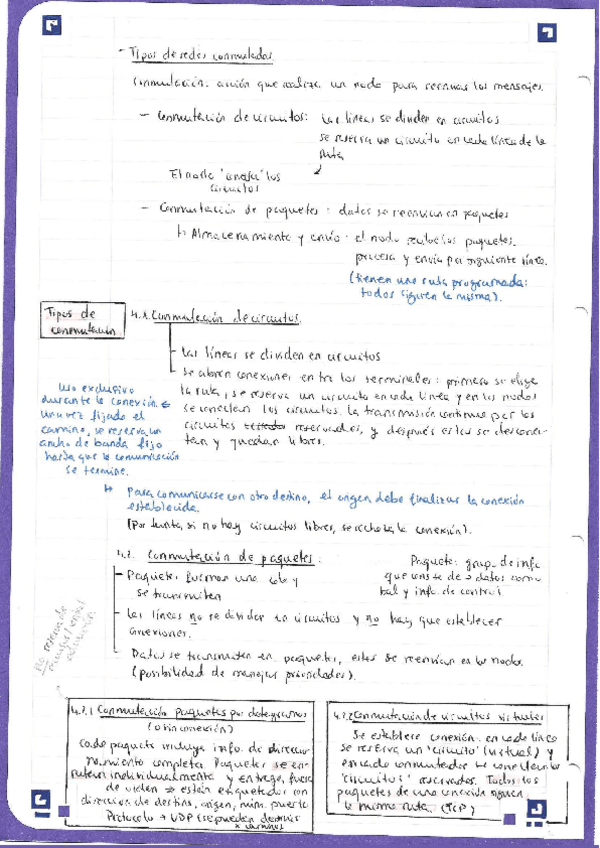 - Tipos de redes conmutadas.
Conmutación: acción que realiza un nodo para reenviar los mensajes.
- Conmutación de circuitos: Las líneas se dividen en circuitos
se reserva un circuito en cada línea de la
ruta
El nodo "conecta" los
circuitos
- Conmutación de paquetes: datos se reenvían en paquetes
↳ Almacenamiento y envío: el nodo recibe los paquetes,
procesa y envía por siguiente línea.
(tienen una ruta programada:
todos siguen la misma).
Tipos de
conmutación
4.1. Conmutación de circuitos.
- Las líneas se dividen en circuitos
- Se abren conexiones entre los terminales: primero se elige
la ruta, se reserva un circuito en cada línea y en los nodos
se conectan los circuitos. La transmisión continua por los
circuitos reservados, y después estos se desconec-
tan y quedan libres.
Uso exclusivo
durante la conexión.
una vez fijado el
camino, se reserva un
ancho de banda fijo
hasta que la comunicación
se termine.
↳ Para comunicarse con otro destino, el origen debe finalizar la conexión
establecida.
(Por tanto, si no hay circuitos libres, se rechaza la conexión).
4.2. Conmutación de paquetes:
- Paquetes forman una cola y
se transmiten
Paquete: grup. de info
que consta de → datos
y info. de control
- Las líneas no se dividen en circuitos y no hay que establecer
conexiones.
- Datos se transmiten en paquetes, estos se reenvían en los nodos.
(posibilidad de manejar prioridades).
No reserva de
4.2.1 Conmutación paquetes por datagramas
(o sin conexión)
Cada paquete incluye info. de direccio-
namiento completa. Paquetes se en-
rutan individualmente y entrega fuera
de orden → están etiquetados con
dirección de destino, origen, núm. puerto
Protocolo → UDP (se pueden destruir
4.2.2 Conmutación de circuitos virtuales
Se establece conexión: en cada línea
se reserva un 'circuito' (virtual) y
en cada conmutador se conectan los
'circuitos' reservados. Todos los
paquetes de una conexión siguen
la misma ruta. (TCP)